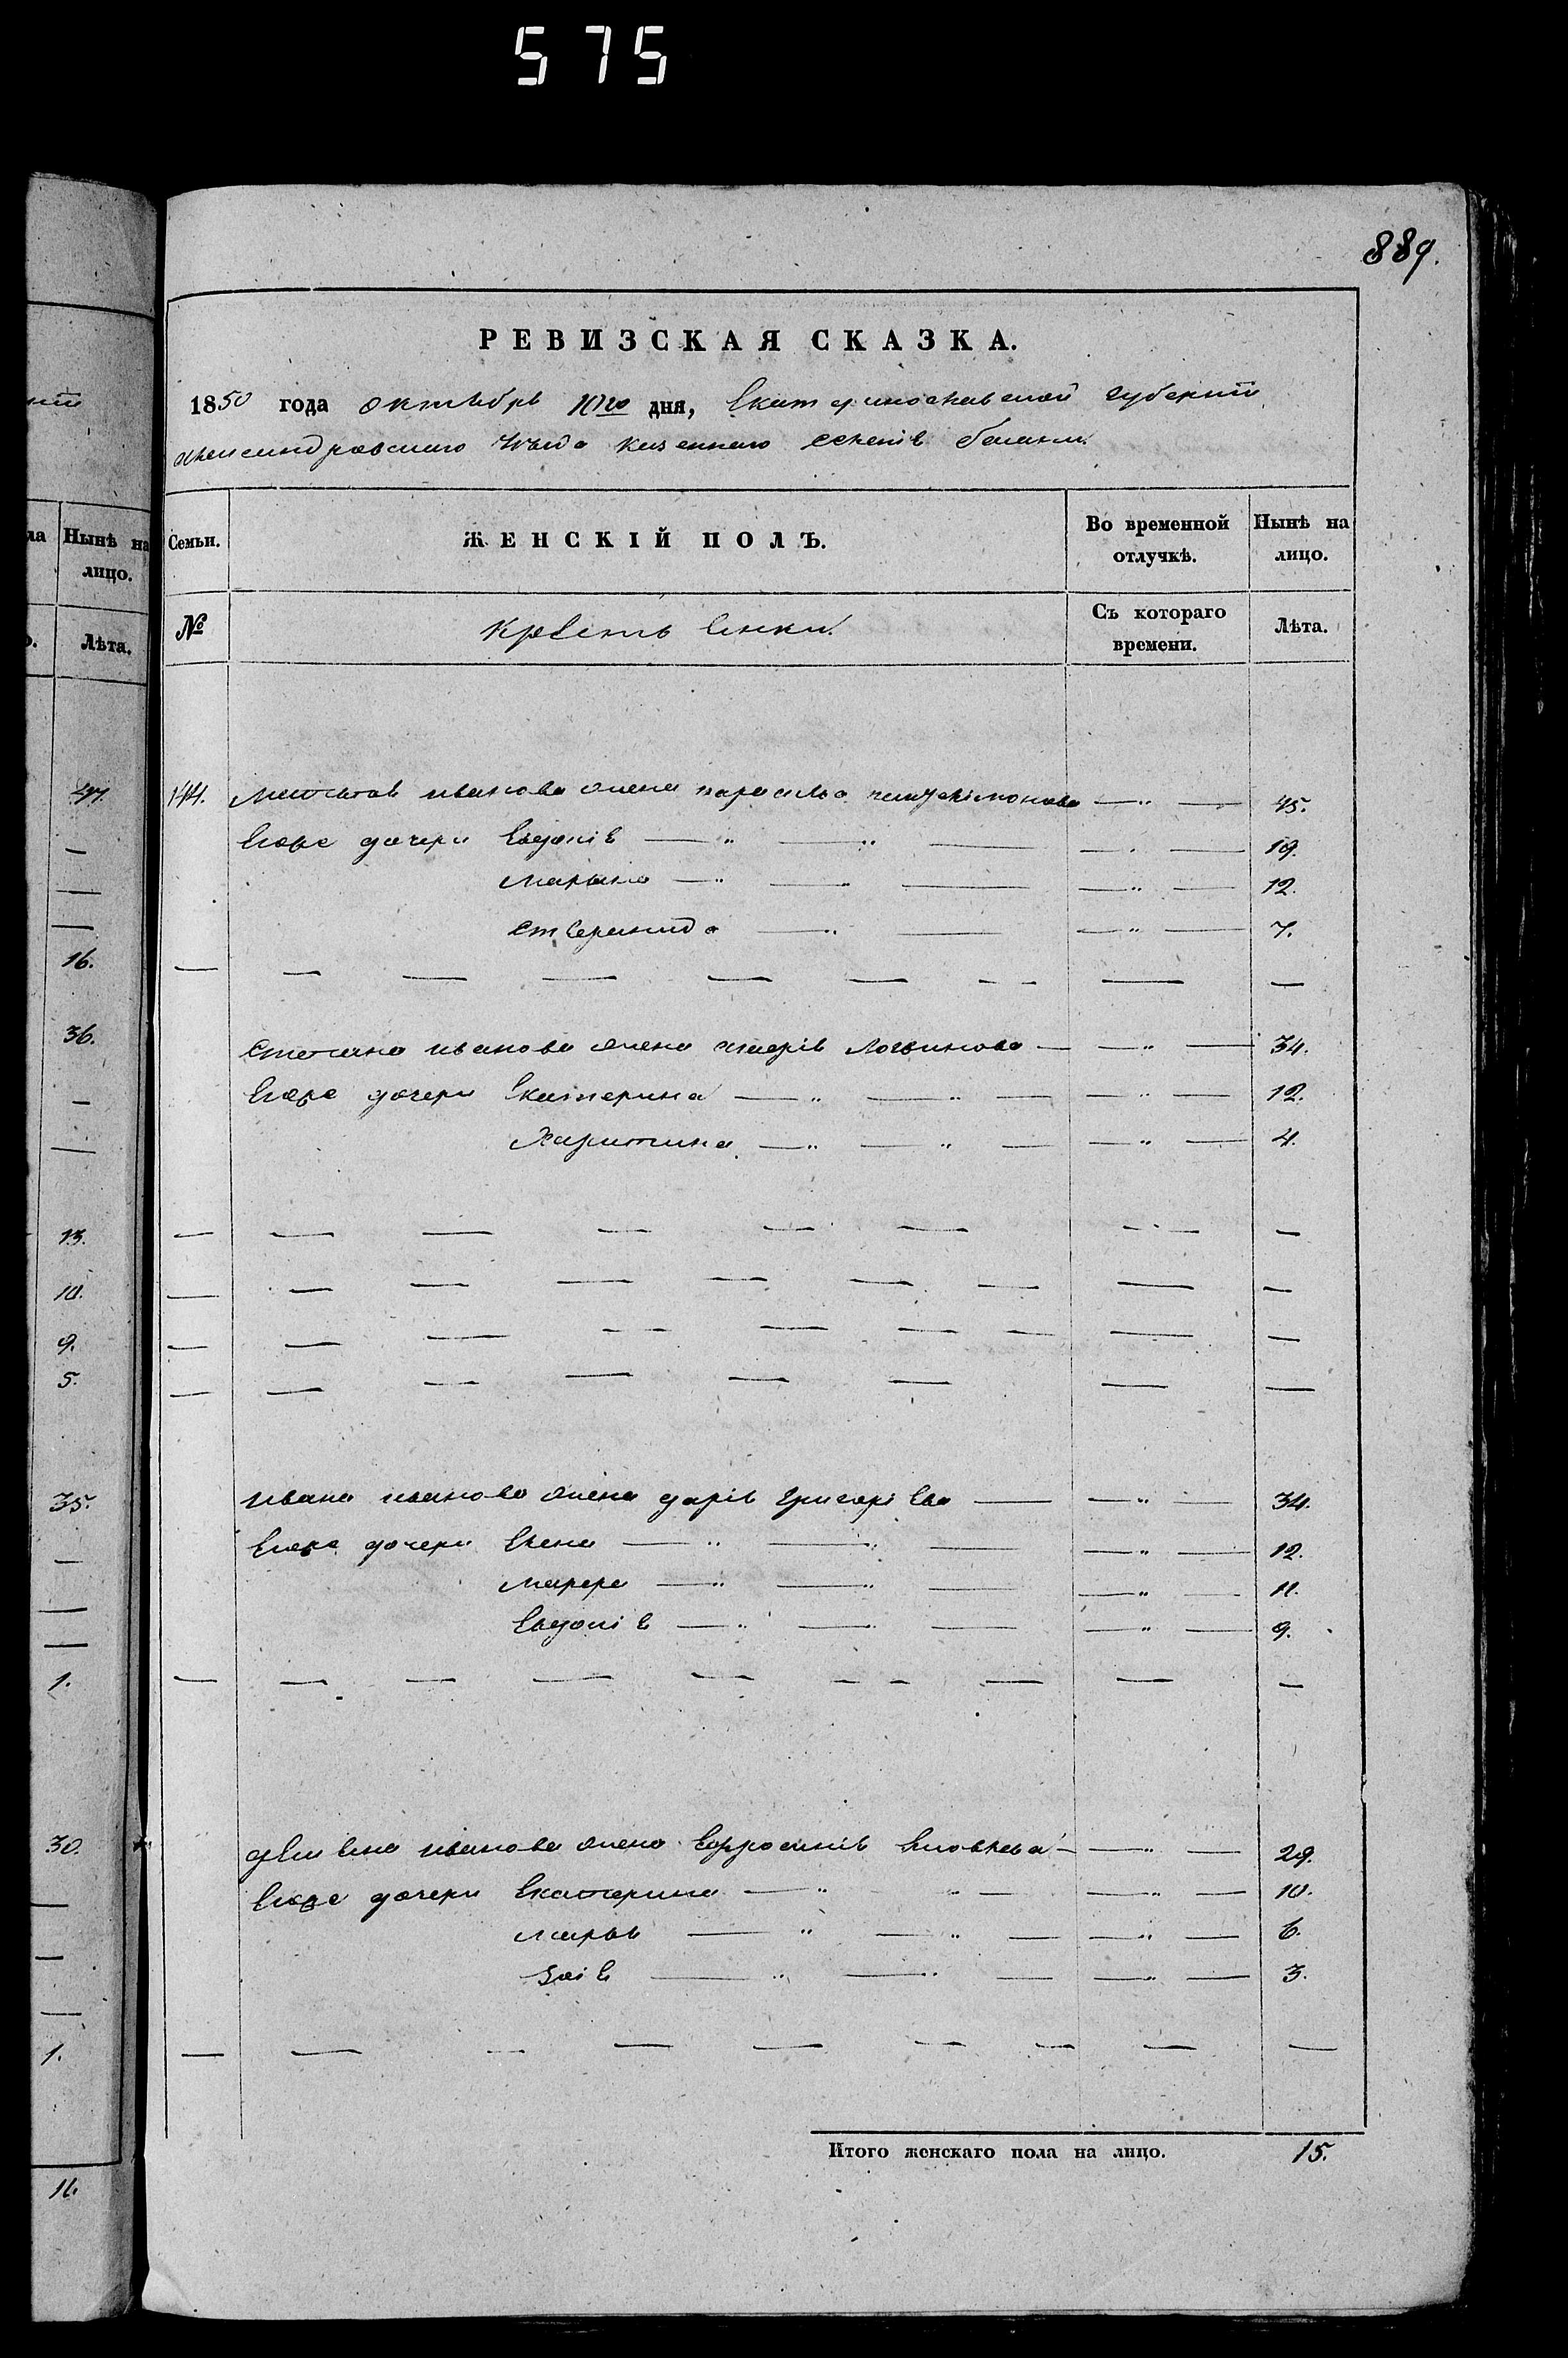 575
889.
РЕВИЗСКАЯ СКАЗКА.
1850 года октября 10го дня, Екатеринославской губернии
александровского уезда казенного селенія белики
Семьи. ЖЕНСКІЙ ПОЛЪ. Во временной отлучкѣ. Нынѣ на лицо.
№ Крестьянки. Съ котораго времени. Лѣта.
144. иванова жена параскева 45.
Его дочери Евдокія 19.
Марина 12.
7.
Степана иванова жена марія Логвинова 34.
Его дочери Екатерина 12.
Харитина 4.
Ивана иванова жена дарія григоріева 34.
Его дочери Елена 12.
11.
Евдокія 9.
иванова жена Ефросинія Яковлева 29.
Его дочери Екатерина 10.
марья 6.
Зоія 3.
Итого женскаго пола на лицо. 15.
ла Нынѣ на лицо.
Лѣта.
47.
16.
36.
13.
10.
9.
5.
35.
1.
30.
1.
11.